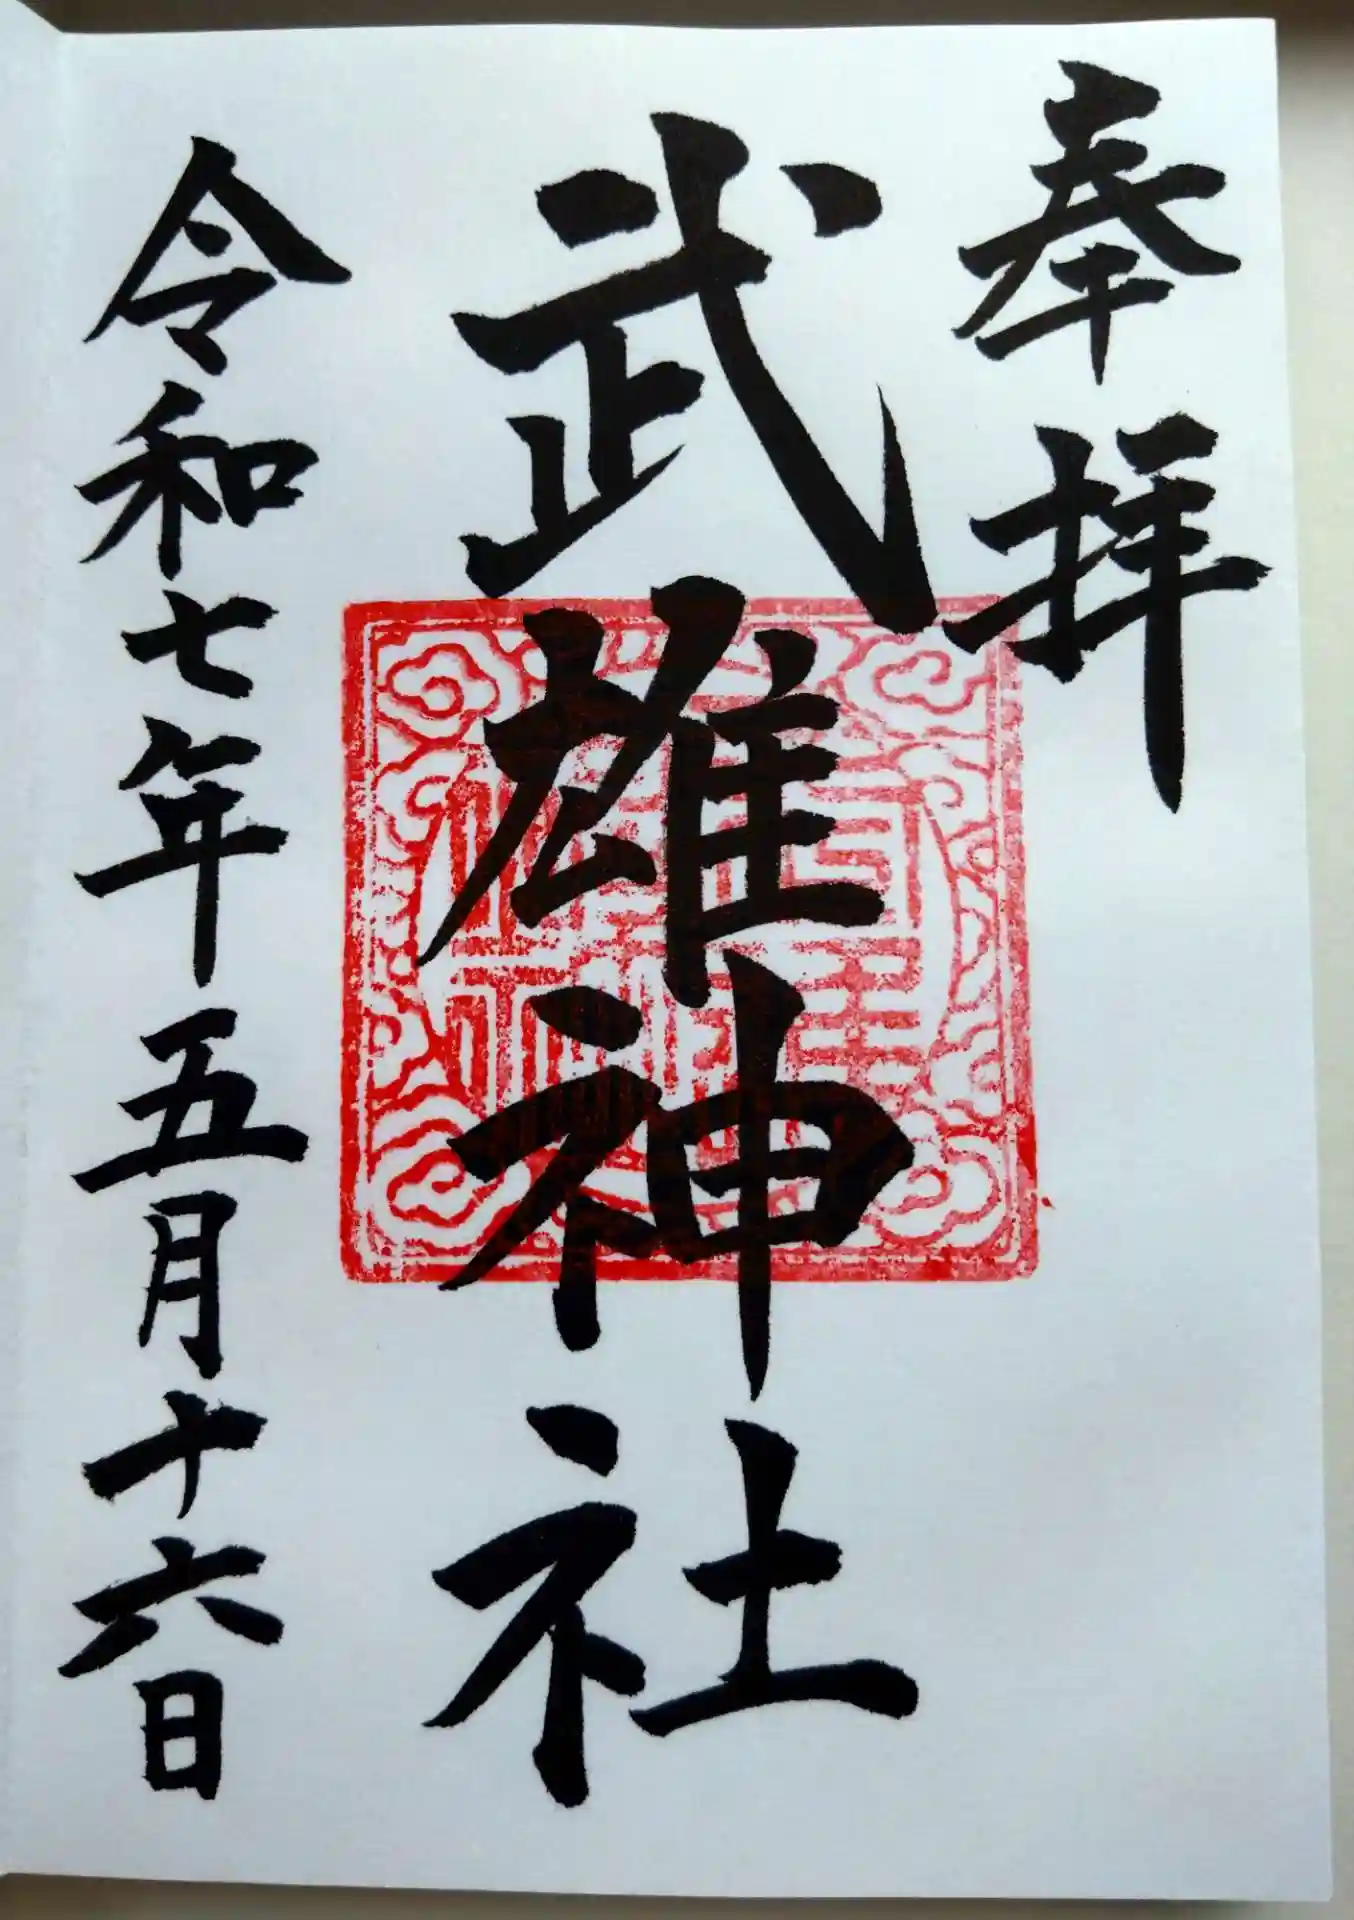 奉拝
武雄神社
令和七年五月十六日